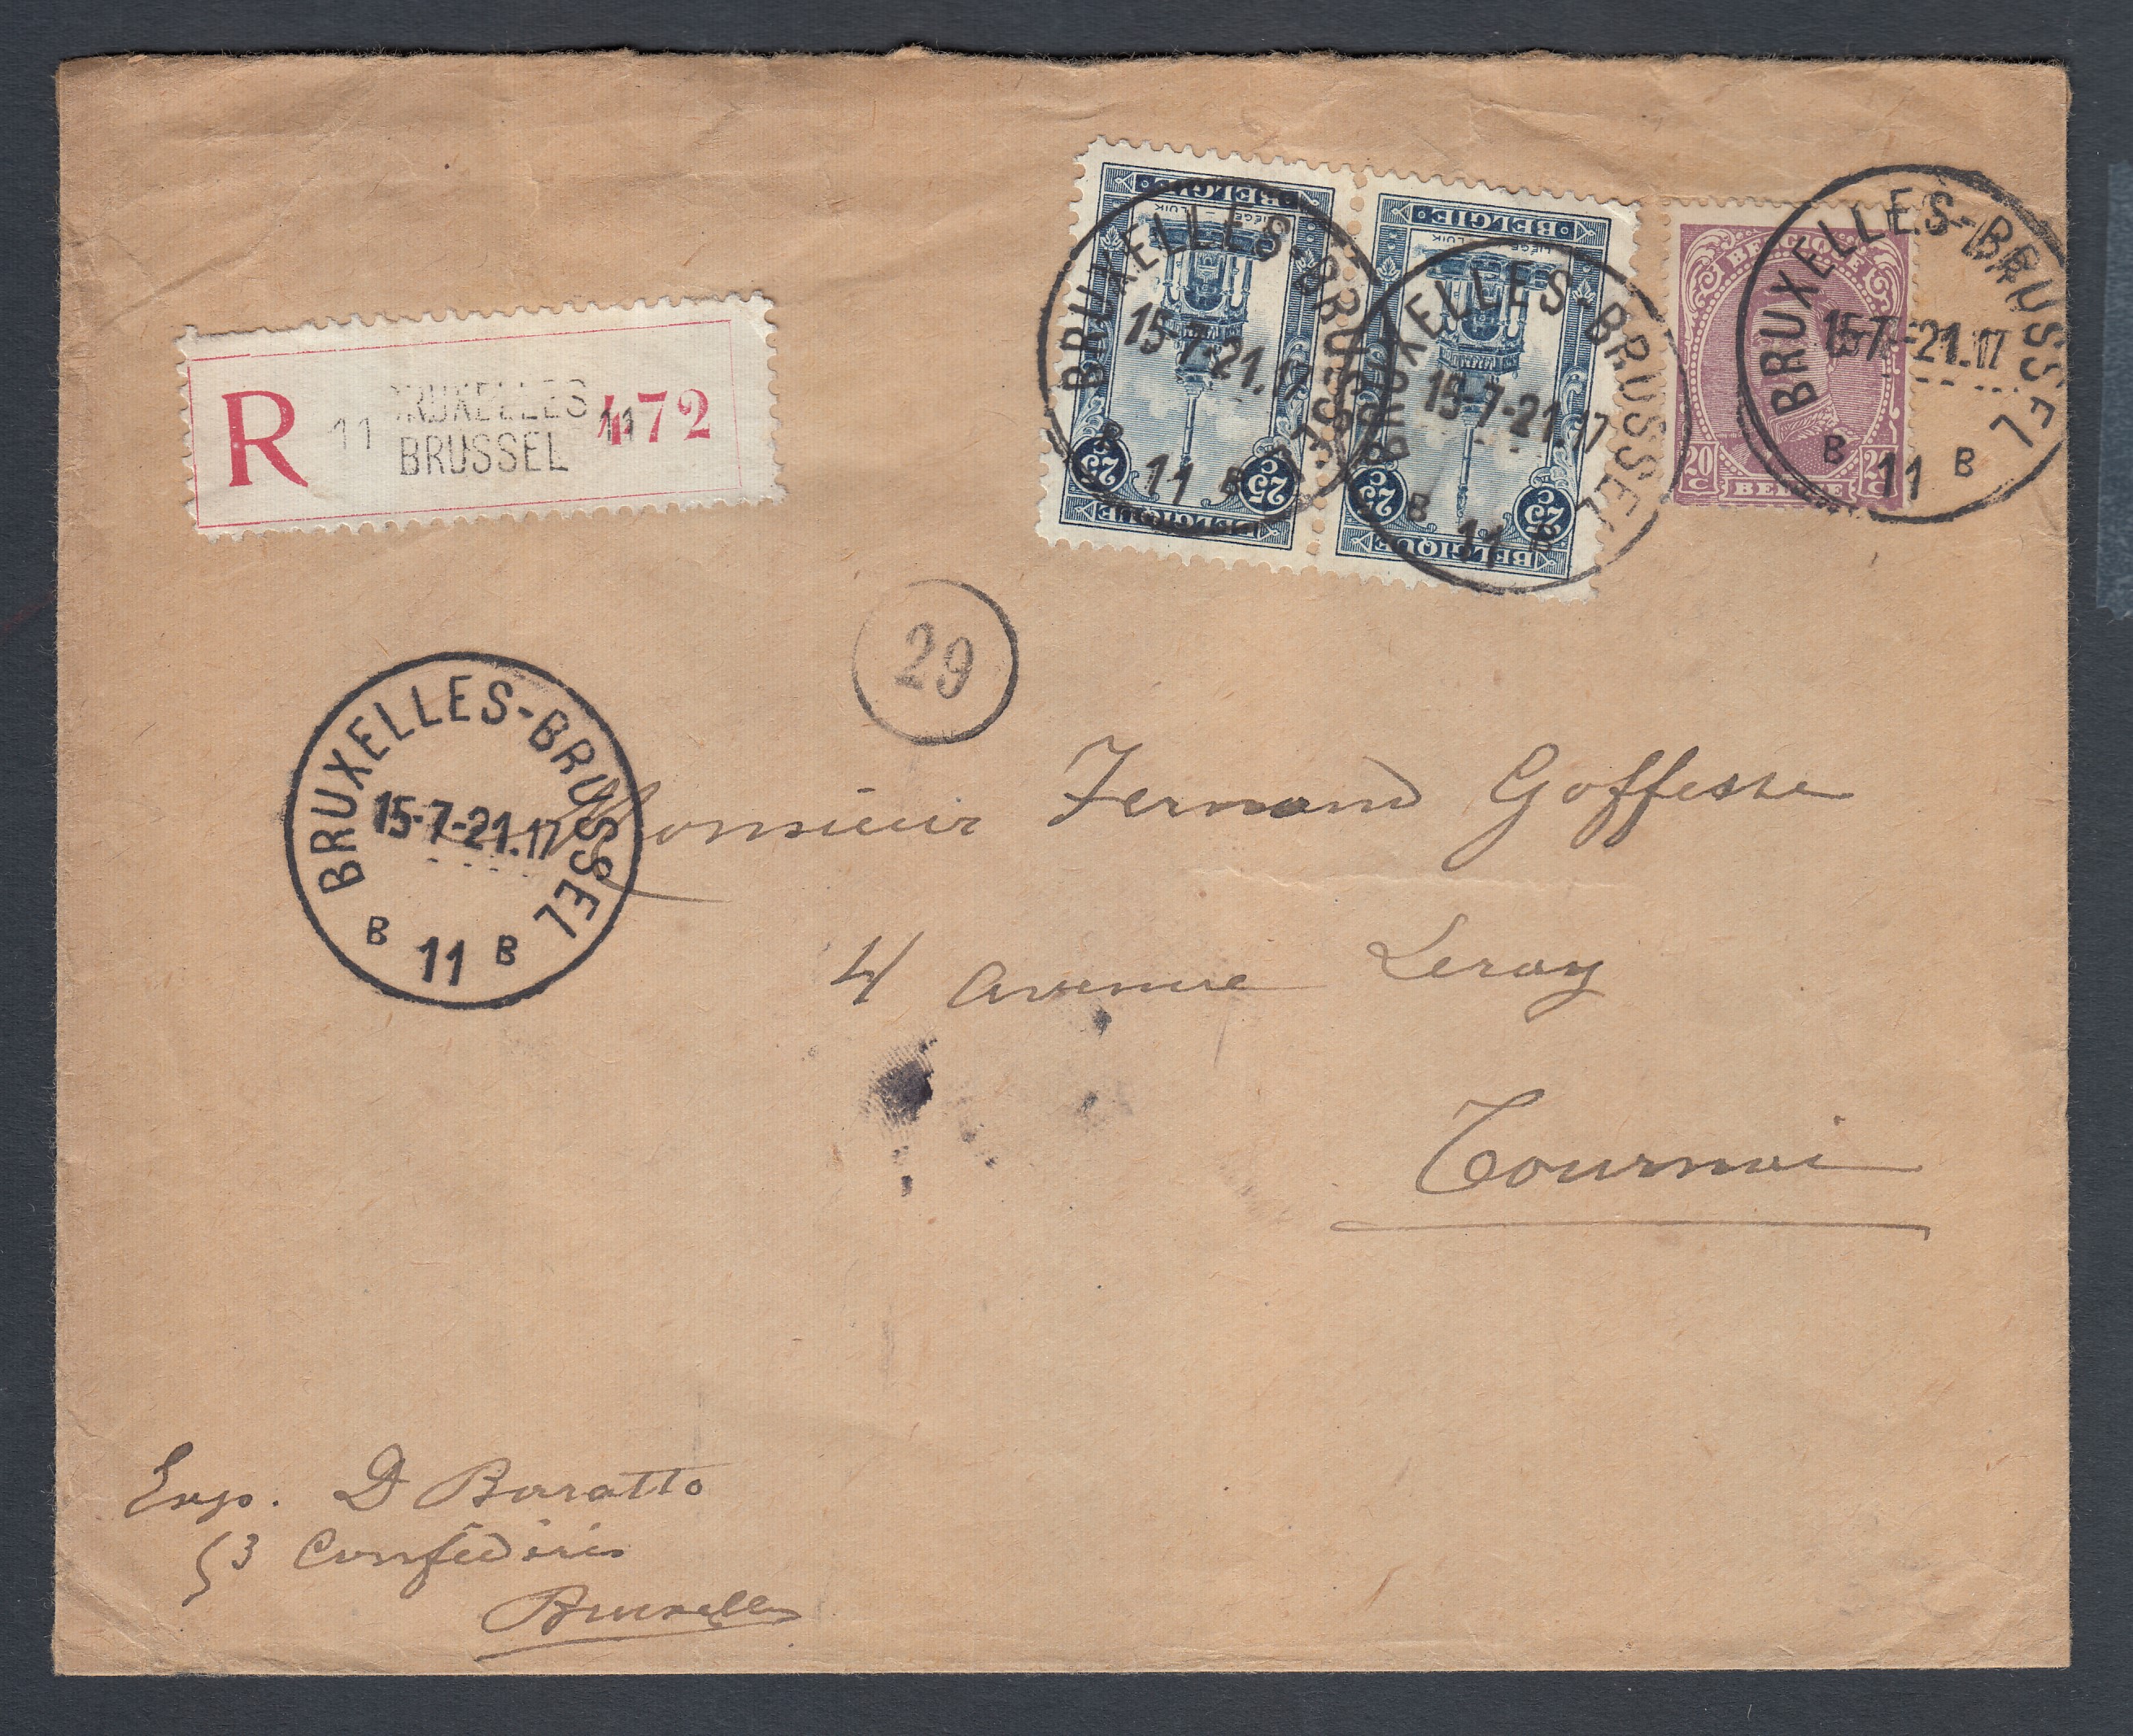 BELGIE
LIÉGE - LUIK
25 c
25 c
BELGIQUE
BELGIE
LIÉGE - LUIK
25 c
25 c
BELGIQUE
BELGIQUE
20 c
BELGIE
BRUXELLES-BRUSSEL
15-7-21.17
B 11 B
BRUXELLES-BRUSSEL
15-7-21.17
B 11 B
BRUXELLES-BRUSSEL
15-7-21.17
B 11 B
R 11 BRUXELLES 11 472
BRUSSEL
29
BRUXELLES-BRUSSEL
15-7-21.17
B 11 B
Monsieur Fernand Goffesse
4 Avenue Leray
Tournai
Exp. D Baratto
53 Confédérés
Bruxelles